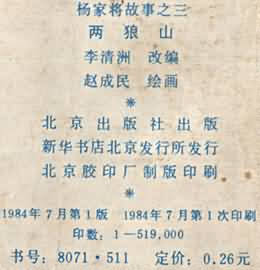 杨家将故事之三
两狼山
李清洲 改编
赵成民 绘画
*
北京出版社出版
新华书店北京发行所发行
北京胶印厂制版印刷
*
1984年7月第1版 1984年7月第1次印刷
印数：1—519,000
书号：8071·511 定价：0.26元